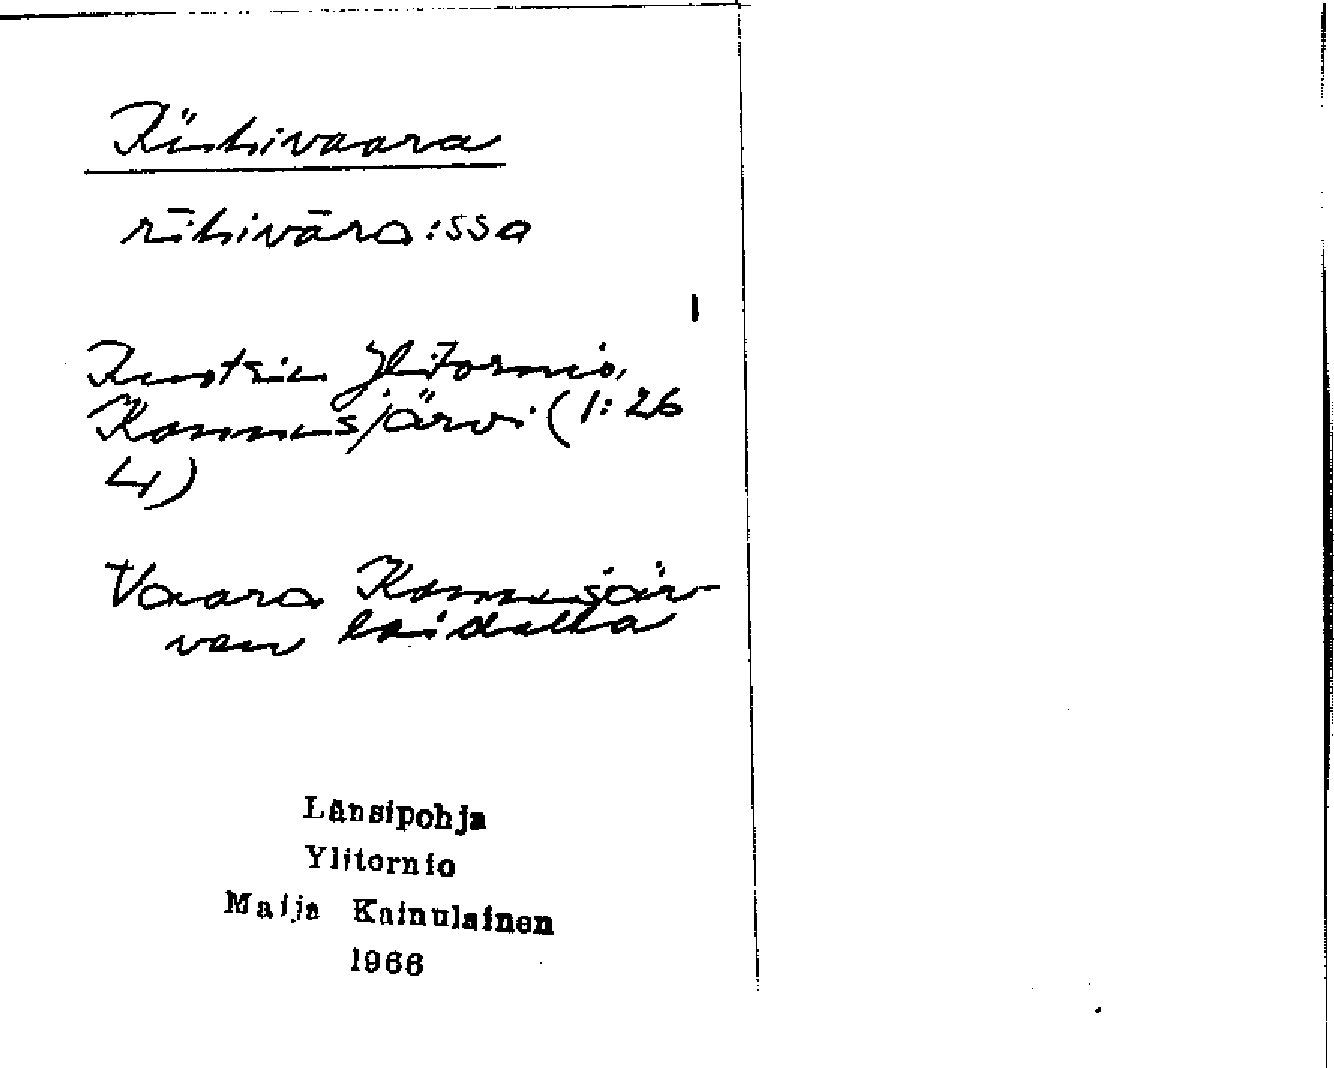 Riihivaara
rīhivāra:ssa
I
Ruotsin Ylitornio,
Kannusjärvi (1:26
4)
Vaara Kannusjär-
ven laidalla
Länsipohja
Ylitornio
Maija Kainulainen
1966